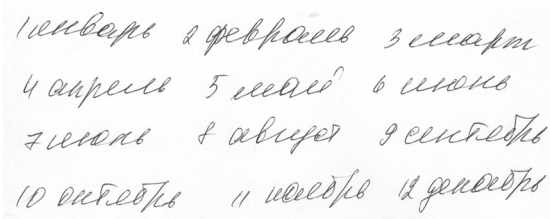 1 январь 2 февраль 3 март
4 апрель 5 май 6 июнь
7 июль 8 август 9 сентябрь
10 октябрь 11 ноябрь 12 декабрь